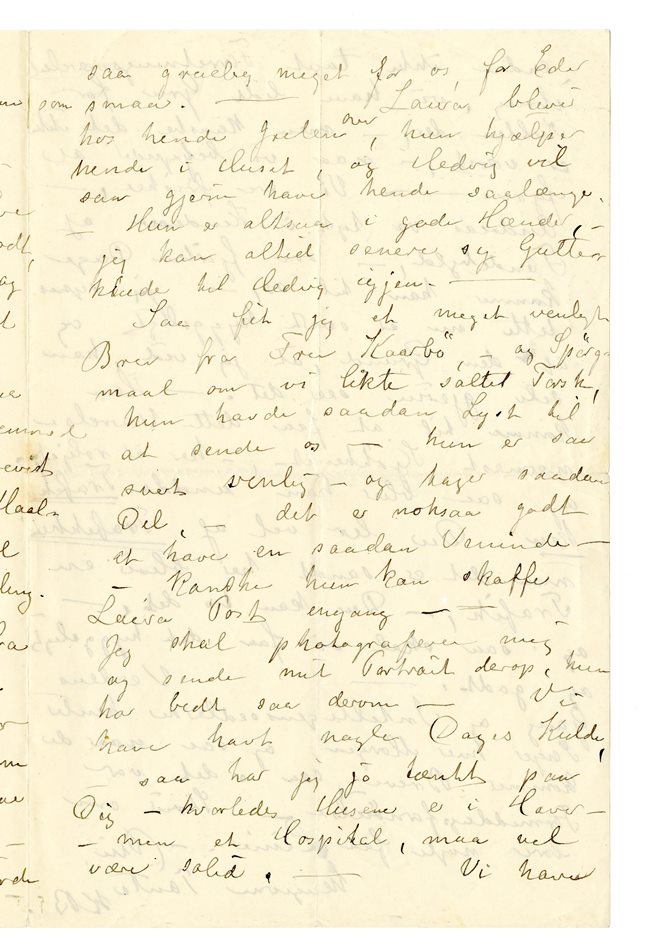 saa græelig meget for os, for Eder
som smaa. — Laura blev
hos hende Julen over, hun hjælper
hende i Huset, og Hedvig vil
saa gjerne have hende saalænge.
— Hun er altsaa i gode Hænder, —
jeg kan altid senere sy
til Hedvig igjen. —
Saa fik jeg et meget venligt
Brev fra Fru Kaarbö, — og Spörgs-
maal om vi likte saltet Torsk,
hun havde saadan Lyst til
at sende os — hun er saa
svært venlig — og tager saadan
Del, — det er noksaa godt
at have en saadan Veninde —
— kanske hun kan skaffe
Laura Post engang — —
Jeg skal photografere mig
og sende mit Portrait derop, hun
har bedt saa derom — Vi
have havt nogle Dages Kulde,
— saa har jeg jo tænkt paa
Dig — hvorledes Husene er i
— men et Hospital, maa vel
være solid. — Vi have